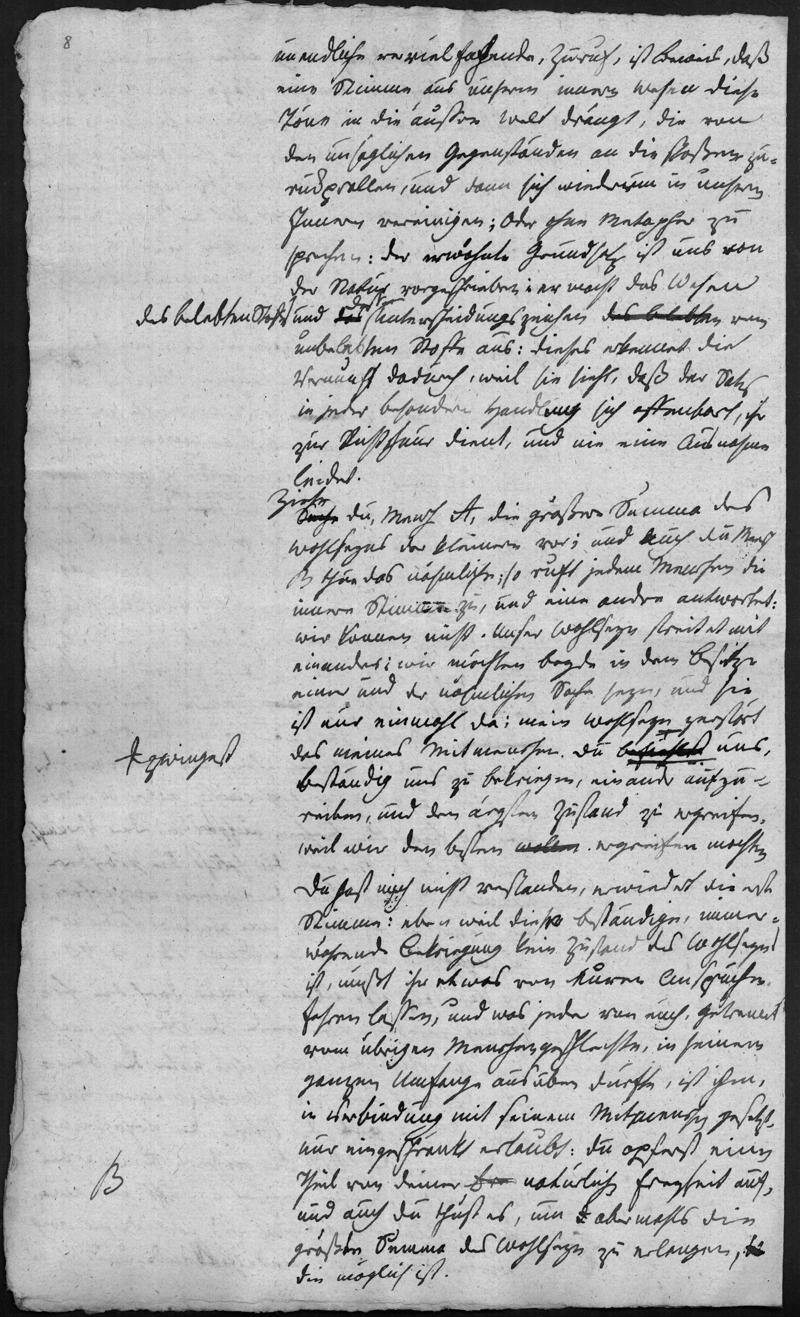 8
unendliche vervielfachende, Zuruf, ist Beweis, daß
eine Stimme aus unserm innern Wesen diese
Töne in die äussre Welt drängt, die von
den unsäglichen Gegenständen an die sie zu-
rückprallen, und dann sich wiederum in unserm
Innern vereinigen; Oder ohne Metapher zu
sprechen: der erwähnte Grundsatz ist uns von
der Natur vorgeschrieben: er macht das Wesen
des belebten Stoffs und das Unterscheidungszeichen des belebten vom
unbelebten Stoffe aus: dieses erkennet die
Vernunft dadurch, weil sie sieht, daß der Satz
in jeder besondern Handlung sich offenbart, ihr
zur Richtschnur dient, und nie eine Ausnahme
leidet.
Ziehe
Suche du, Mensch A, die größere Summa des
Wohlseyns der kleinern vor; und auch du Mensch
B thue das nähmliche; so ruft jedem Menschen die
innere Stimme zu, und eine andre antwortet:
wir können nicht. Unser Wohlseyn streitet mit
einander: wir möchten beyde in dem Besitze
einer und der nähmlichen Sache seyn, und sie
ist nur einmahl da; mein Wohlseyn zerstört
das meines Mitmenschen. Du befiehlst uns,
zwingest
beständig uns zu bekriegen, einander aufzu-
reiben, und den ärgsten Zustand zu ergreifen,
weil wir den besten wollen ergreifen möchten
Du hast mich nicht verstanden, erwiedert die erste
Stimme: eben weil diese beständige, immer-
währende Bekriegung kein Zustand des Wohlseyns
ist, müßt ihr etwas von Euren Ansprüchen
fahren lassen, und was jeder von euch, getrennt
vom übrigen Menschengeschlechte, in seinem
ganzen Umfange ausüben dürfte, ist ihm,
in Verbindung mit seinem Mitmenschen gesetzt,
nur eingeschränkt erlaubt: du opferst einen
Theil von deiner natürlich Freyheit auf,
B
und auch du thust es, um abermahls die
größte Summa des Wohlseyn zu erlangen,
die möglich ist.